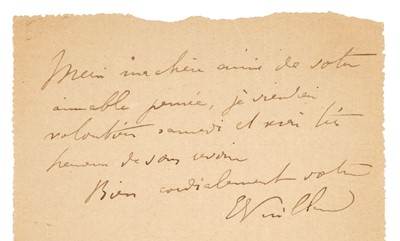 Merci mon cher ami de votre
aimable pensée, je viendrai
volontiers samedi et serai très
heureux de vous revoir
Bien cordialement votre
EVuillard